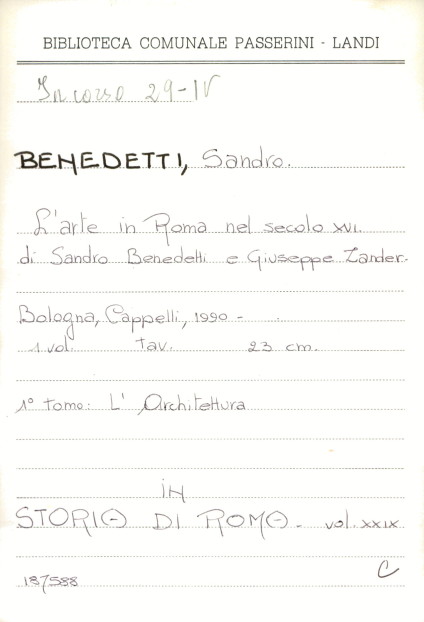 BIBLIOTECA COMUNALE PASSERINI - LANDI
In corso 29-IV
BENEDETTI, Sandro.
L'arte in Roma nel secolo XVI.
di Sandro Benedetti e Giuseppe Zander.
Bologna, Cappelli, 1990 -
1 vol. tav. 23 cm.
1° tomo: L' Architettura
in
STORIA DI ROMA - vol. XXIX
187588 C